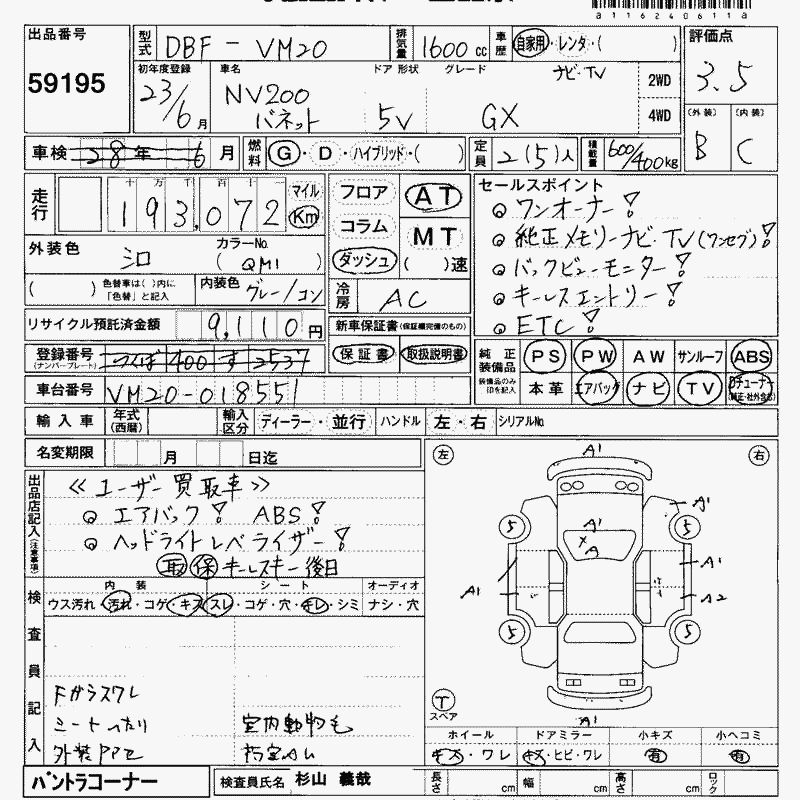 a116240611a
出品番号 59195
型式 DBF-VM20 排気量 1600cc 車歴 自家用・レンタ・( ) 評価点 3.5
初年度登録 23/6月 車名 NV200 バネット ドア 形状 5V グレード GX ナビ・TV 2WD 4WD
(外装) B (内装) C
車検 28年 6月 燃料 G・D・ハイブリッド・( ) 定員 2(5)人 積載量 600/400kg
走行 十 万 千 百 十 一 193,072 マイル Km
フロア コラム ダッシュ AT MT ( )速
外装色 シロ カラーNo. (QM1)
( ) 色替車は( )内に「色替」と記入 内装色 グレー/コン
冷房 AC
リサイクル預託済金額 9,110円
新車保証書(保証欄完備のもの) 保証書 取扱説明書
登録番号 (ナンバープレート) つくば 400 す 2537
車台番号 VM20-018551
セールスポイント
◎ ワンオーナー!
◎ 純正メモリーナビ・TV(ワンセグ)!
◎ バックビューモニター!
◎ キーレスエントリー!
◎ ETC!
純正装備品 PS PW AW サンルーフ ABS
装備品のみ印を記入 本革 エアバッグ ナビ TV Dチューナー(純正・社外含む)
輸入車 年式(西暦) 輸入区分 ディーラー・並行 ハンドル 左・右 シリアルNo.
名変期限 月 日迄
出品店記入(注意事項)
≪ユーザー買取車≫
◎ エアバック! ABS!
◎ ヘッドライトレベライザー!
取 保 キーレスキー後日
検査員記入
内装 シート オーディオ
ウス汚れ・汚れ・コゲ・キズ スレ・コゲ・穴・キレ・シミ ナシ・穴
Fガラスワレ
シートへたり 室内動物毛
左 右
A1
A1
A1
A
5 5
A1
A1
A1 A2
5 5
T スペア
A1
ホイール ドアミラー 小キズ 小ヘコミ
キズ・ワレ キズ・ヒビ・ワレ 有 有
バントラコーナー 検査員氏名 杉山 義哉 長さ cm 幅 cm 高さ cm ロック